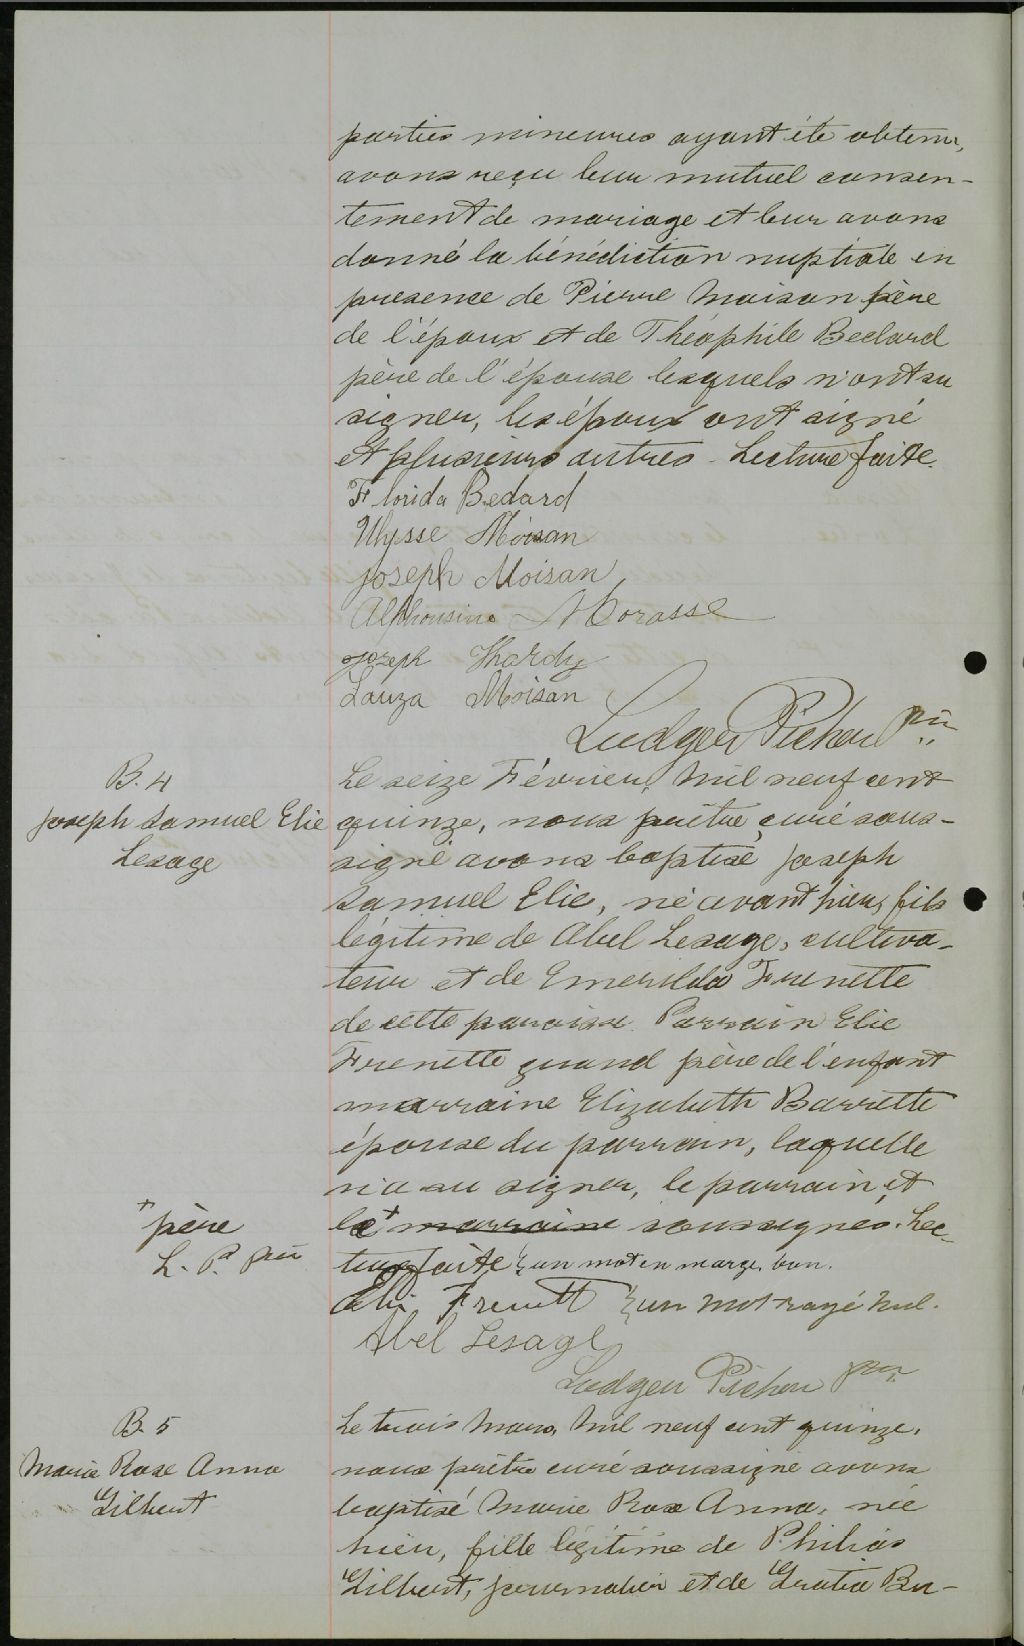 parties mineures ayant été obtenu,
avons reçu leur mutuel consen-
tement de mariage et leur avons
donné la bénédiction nuptiale en
presence de Pierre Moisan père
de l'époux et de Théophile Bedard
père de l'épouse lesquels n'ont su
signer, les époux ont signé
et plusieurs autres - Lecture faite.
Florida Bedard
Ulysse Moisan
Joseph Moisan
Alphonsine Morasse
Joseph Hardy
Lauza Moisan
Ludger Pichou ptre
B. 4
Joseph Samuel Elie
Lesage
Le seize Février, Mil neuf cent
quinze, nous prêtre curé sous-
signé avons baptisé Joseph
Samuel Elie, né avant hier, fils
légitime de Abel Lesage, cultiva-
teur et de Emerilda Frenette
de cette paroisse. Parrain Elie
Frenette grand père de l'enfant
marraine Elizabeth Barrette
épouse du parrain, laquelle
n'a su signer, le parrain et
le + marraine soussignés. Lec-
ture faite un mot en marge, bon.
+ père
L. P. ptre
Elie Frenett un mot rayé nul.
Abel Lesage
Ludger Pichou ptre
B. 5
Marie Rose Anna
Gilbert
Le trois Mars, Mil neuf cent quinze,
nous prêtre curé soussigné avons
baptisé Marie Rose Anna, née
hier, fille légitime de Philias
Gilbert, journalier et de Gratia Bu-